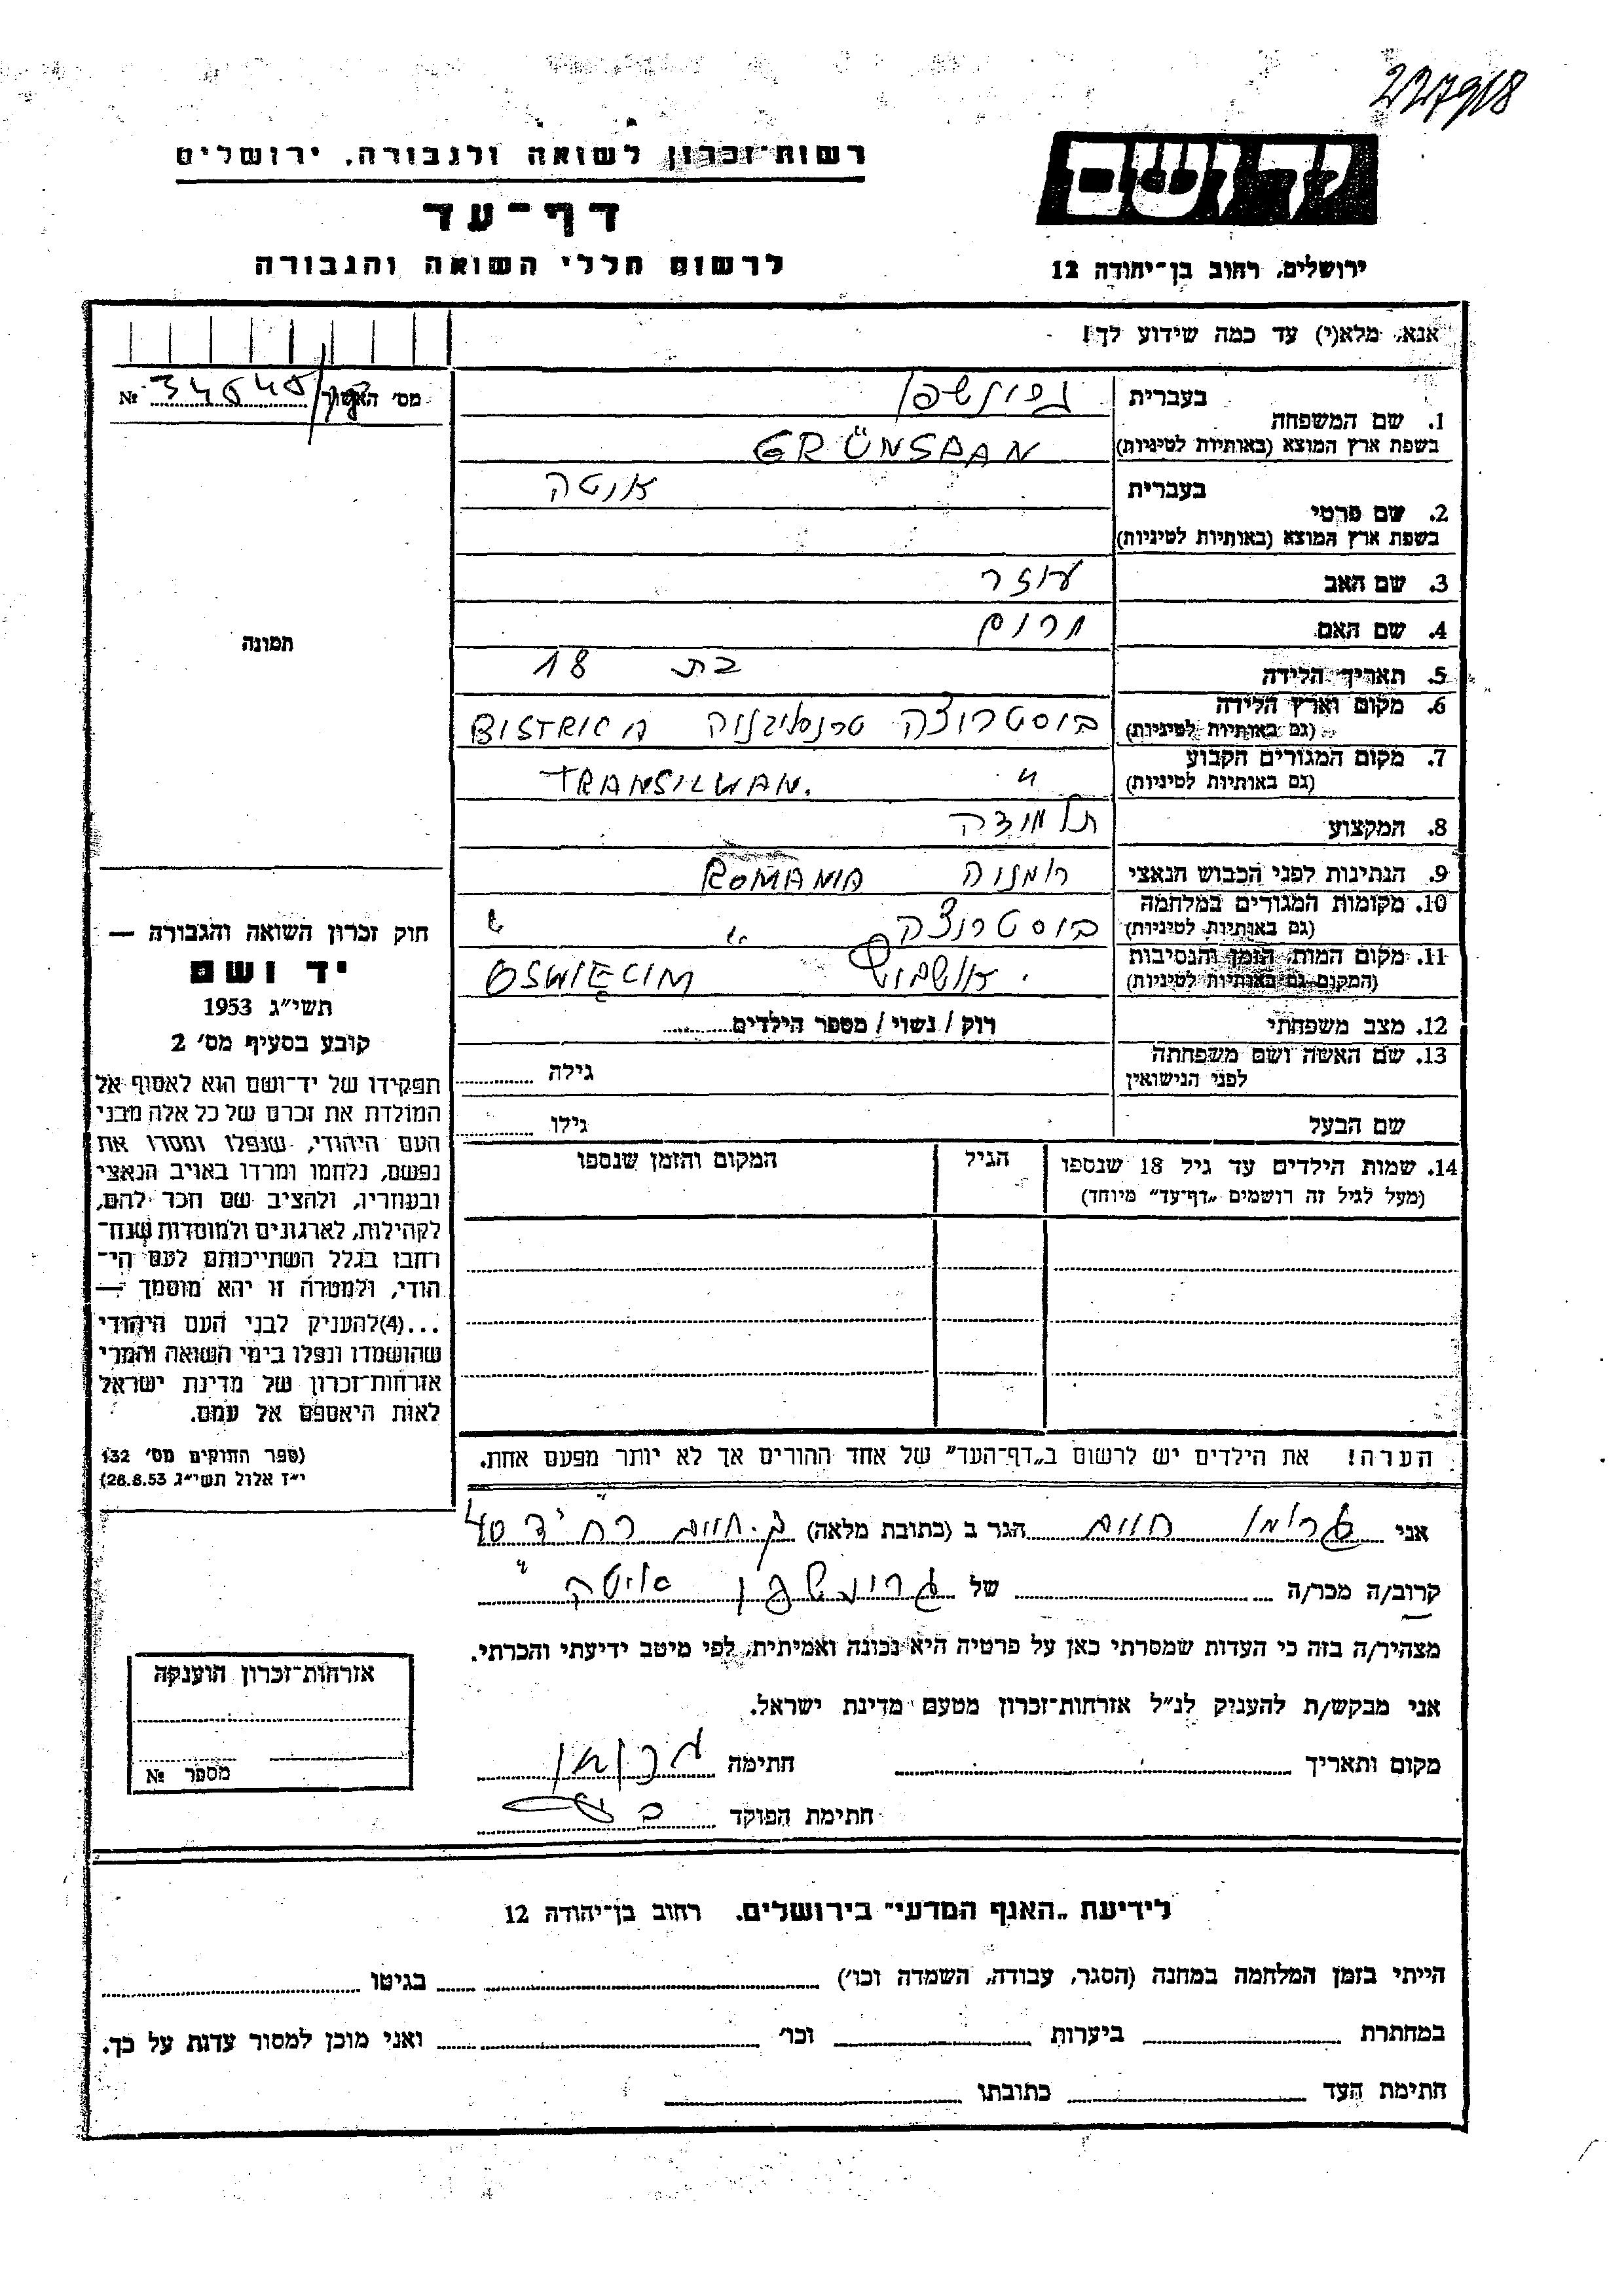 227918
רשות־זכרון לשואה ולגבורה, ירושלים
יד ושם
דף־עד
לרשום חללי השואה והגבורה
ירושלים, רחוב בן־יהודה 12
אנא, מלא(י) עד כמה שידוע לך!
מס׳ האשור № 34545
1. שם המשפחה בעברית גרינשפן
בשפת ארץ המוצא (באותיות לטיניות) GRÜNSPAN
2. שם פרטי בעברית איטה
בשפת ארץ המוצא (באותיות לטיניות)
3. שם האב עוזר
4. שם האם מרים
5. תאריך הלידה בת 18
6. מקום וארץ הלידה ביסטריצה טרנסילבניה
(גם באותיות לטיניות)
7. מקום המגורים הקבוע " TRANSILWAN.
(גם באותיות לטיניות)
8. המקצוע תלמידה
9. הנתינות לפני הכבוש הנאצי רומניה ROMANIA
10. מקומות המגורים במלחמה ביסטריצה " "
(גם באותיות לטיניות)
11. מקום המות, הזמן והנסיבות אושביץ OSWIĘCIM
(המקום גם באותיות לטיניות)
12. מצב משפחתי רוק / נשוי / מספר הילדים
13. שם האשה ושם משפחתה גילה
לפני הנישואין
שם הבעל גילו
14. שמות הילדים עד גיל 18 שנספו הגיל המקום והזמן שנספו
(מעל לגיל זה רושמים „דף־עד” מיוחד)
הערה! את הילדים יש לרשום ב„דף־העד” של אחד ההורים אך לא יותר מפעם אחת.
תמונה
חוק זכרון השואה והגבורה —
יד ושם
תשי״ג 1953
קובע בסעיף מס׳ 2
תפקידו של יד־ושם הוא לאסוף אל
המולדת את זכרם של כל אלה מבני
העם היהודי, שנפלו ומסרו את
נפשם, נלחמו ומרדו באויב הנאצי
ובעוזריו, ולהציב שם וזכר להם,
לקהילות, לארגונים ולמוסדות שנח־
רבו בגלל השתייכותם לעם הי־
הודי, ולמטרה זו יהא מוסמך —
...(4)להעניק לבני העם היהודי
שהושמדו ונפלו בימי השואה והמרי
אזרחות־זכרון של מדינת ישראל
לאות היאספם אל עמם.
(ספר החוקים מס׳ 132
י״ז אלול תשי״ג 26.8.53)
אני חיים הגר ב (כתובת מלאה) ק. חיים רח י"ד 40
קרוב/ה מכר/ה של גרינשפן איטה
מצהיר/ה בזה כי העדות שמסרתי כאן על פרטיה היא נכונה ואמיתית, לפי מיטב ידיעתי והכרתי.
אני מבקש/ת להעניק לנ״ל אזרחות־זכרון מטעם מדינת ישראל.
מקום ותאריך חתימה
חתימת הפוקד
אזרחות־זכרון הוענקה
מספר №
לידיעת „האגף המדעי” בירושלים, רחוב בן־יהודה 12
הייתי בזמן המלחמה במחנה (הסגר, עבודה, השמדה וכו׳) בגיטו
במחתרת ביערות וכו׳ ואני מוכן למסור עדות על כך.
חתימת העד כתובתו